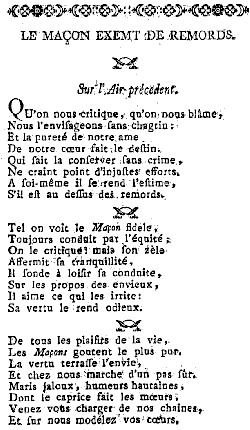 LE MAÇON EXEMT DE REMORDS.
Sur l'Air précédent.
QU'on nous critique, qu'on nous blâme,
Nous l'enviſageons ſans chagrin:
Et la pureté de notre ame
De notre cœur fait le deſtin.
Qui ſait la conſerver ſans crime,
Ne craint point d'injuſtes efforts,
A ſoi-même il ſe rend l'eſtime,
S'il eſt au deſſus des remords.
Tel on voit le Maçon fidele,
Toujours conduit par l'équité,
On le critique! mais ſon zèle
Affermit ſa tranquillité,
Il fonde à loiſir ſa conduite,
Sur les propos des envieux,
Il aime ce qui les irrite:
Sa vertu le rend odieux.
De tous les plaiſirs de la vie,
Les Maçons goutent le plus pur,
La vertu terraſſe l'envie,
Et chez nous marche d'un pas ſûr.
Maris jaloux, humeurs hautaines,
Dont le caprice fait les mœurs,
Venez vous charger de nos chaînes,
Et ſur nous modélez vos cœurs,